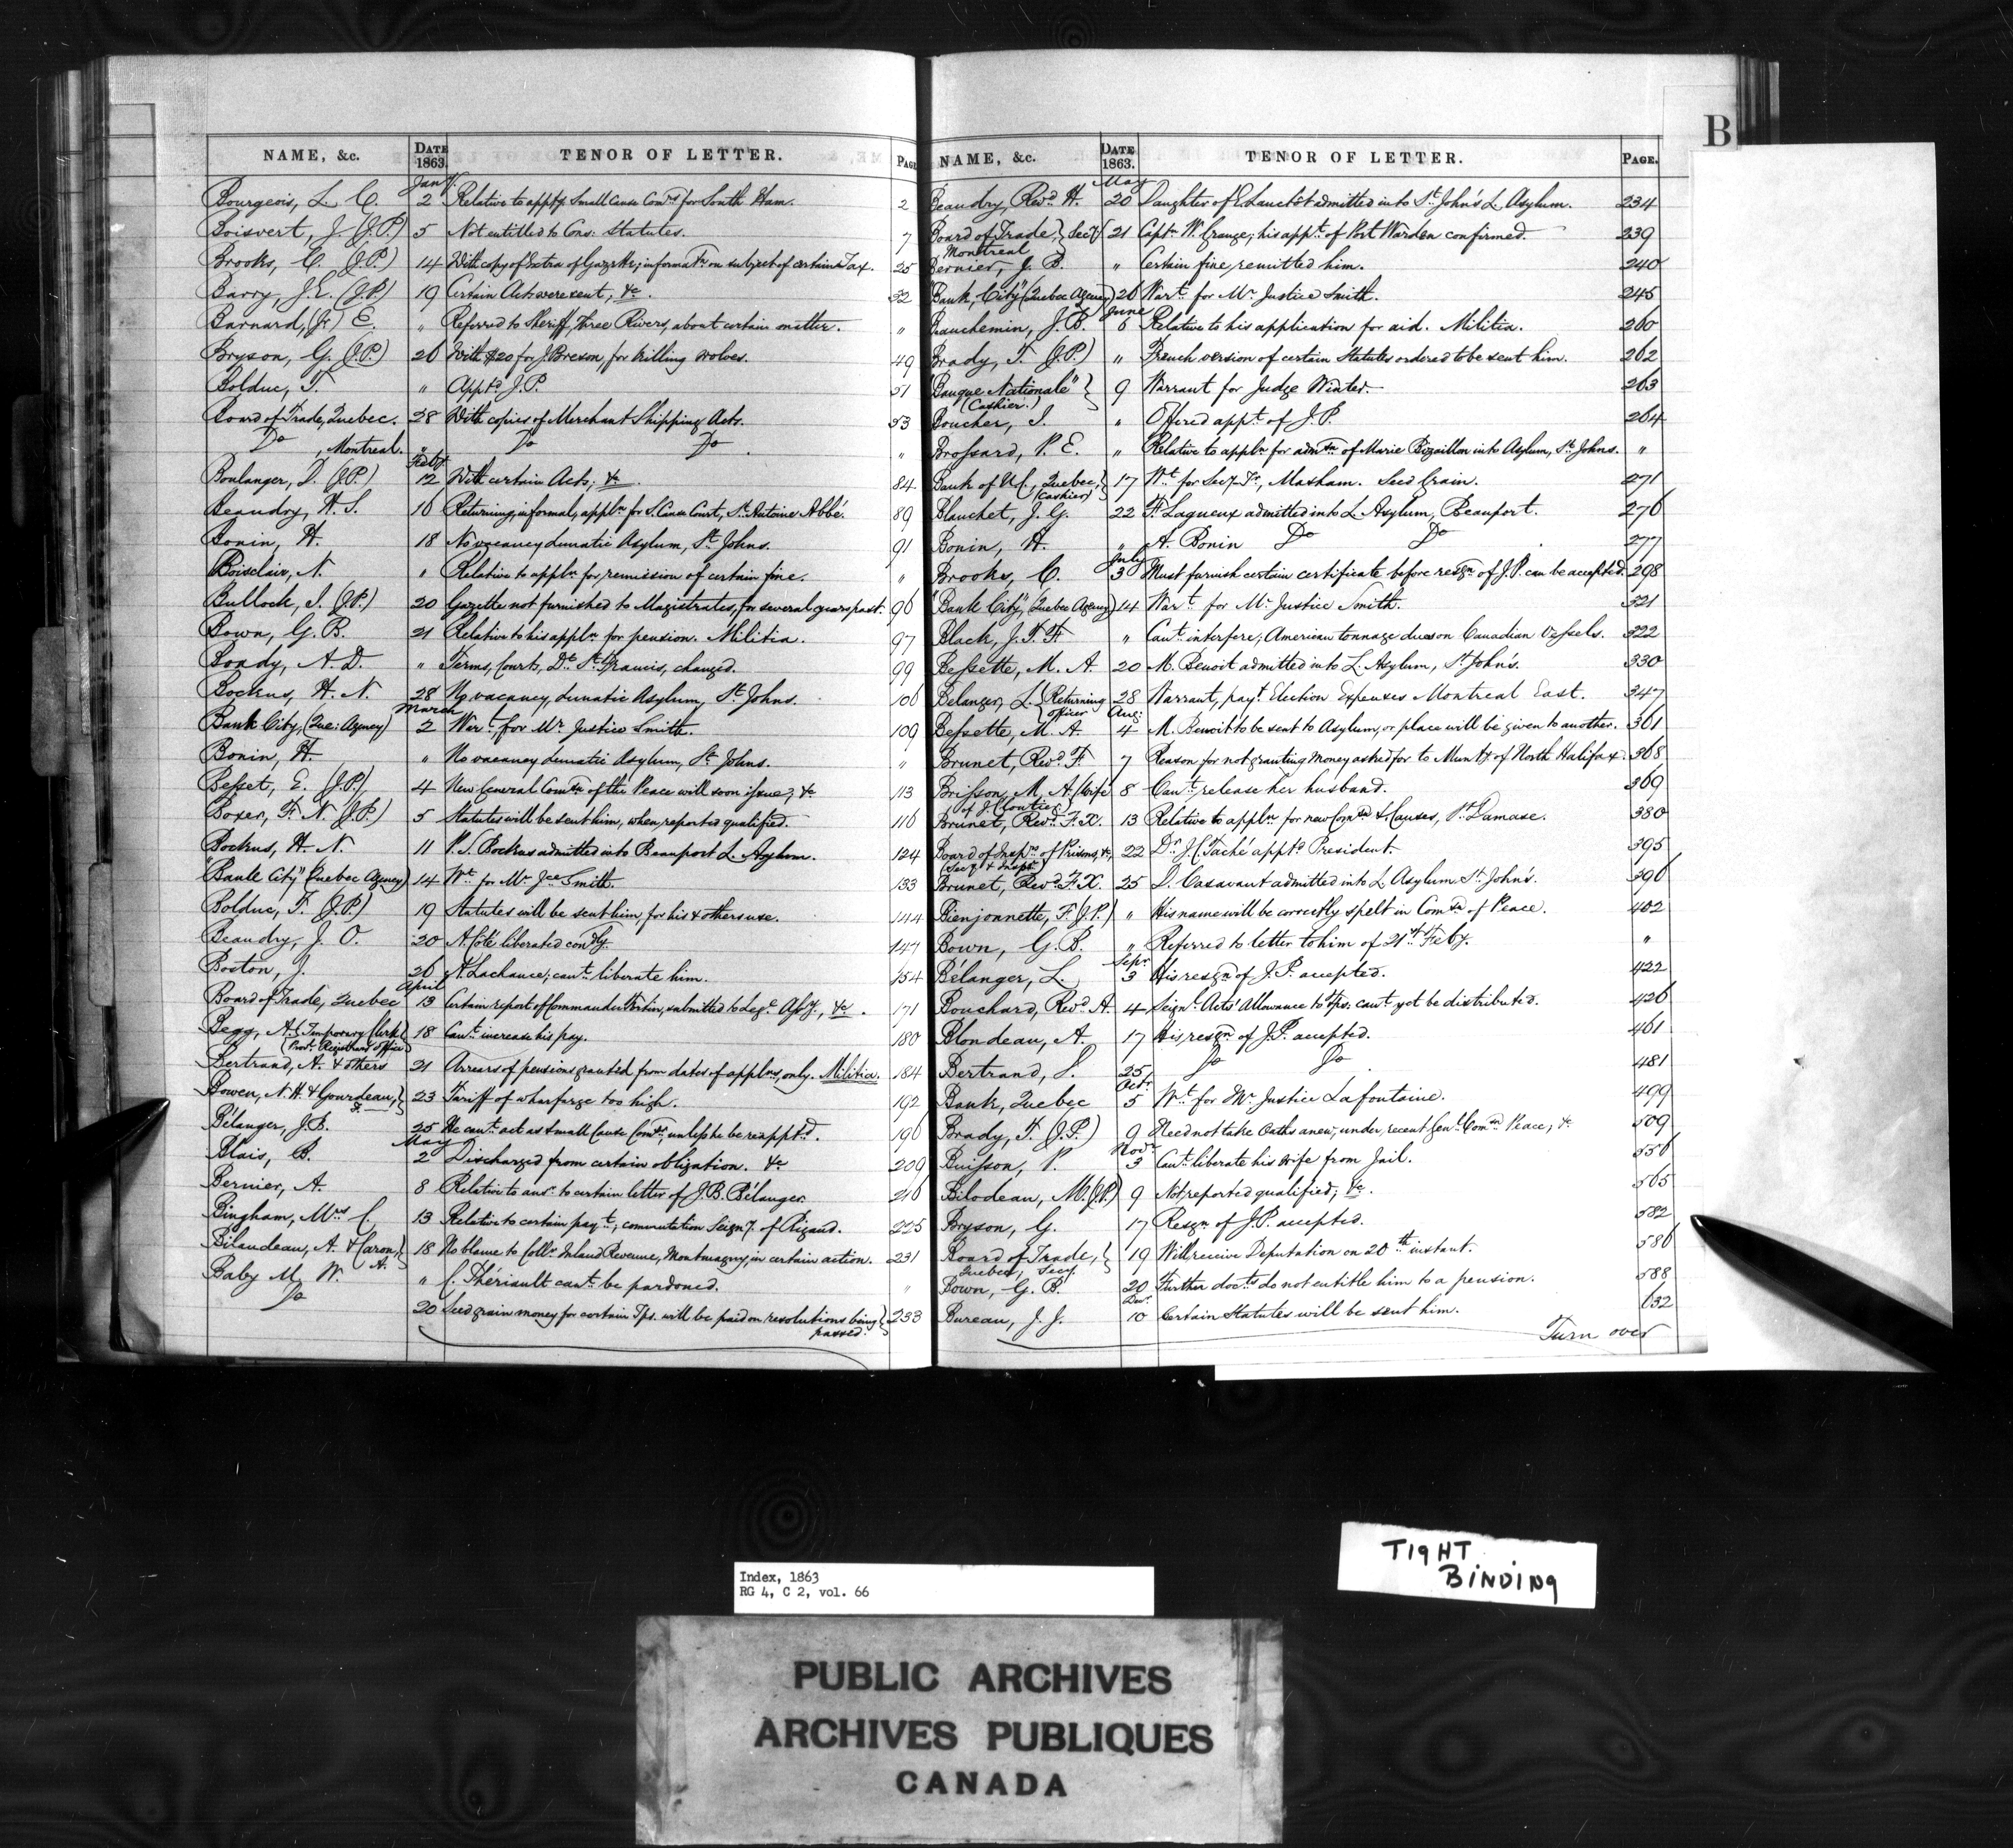 B
NAME, &c. DATE 1863. TENOR OF LETTER. PAGE
Jany.
Bourgeois, L. C. 2 Relative to apptg. Small Cause Comrs for South Ham. 2
Boisvert, J. (J.P.) 5 Not entitled to Cons: Statutes. 7
Brooks, C. (J.P.) 14 With copy of Extra of Gazette; informatn on subject of certain Tax. 25
Barry, J. E. (J.P.) 19 Certain Acts were sent, &c. 32
Barnard, (Jr.) E. " Referred to Sheriff, Three Rivers, about certain matter. "
Bryson, G. (J.P.) 26 With $20 for J. Breson, for killing wolves. 49
Bolduc, T. " Apptd J.P. 51
Board of Trade, Quebec. 28 With copies of Merchant Shipping Acts. 53
Do , Montreal. " Do Do "
Feby.
Boulanger, D. (J.P.) 12 With certain Acts, &c. 84
Beaudry, H. S. 16 Returning, informal, appln for S. Cause Court, St. Antoine Abbé. 89
Bonin, H. 18 No vacancy Lunatic Asylum, St. Johns. 91
Boisclair, N. " Relative to appln for remission of certain fine. "
Bullock, I. (J.P.) 20 Gazette not furnished to Magistrates, for several years past. 96
Bown, G. B. 21 Relative to his appln for pension. Militia. 97
Bondy, A. D. " Terms, Courts, Dt. St. Francis, changed. 99
Bockus, H. N. 28 No vacancy, Lunatic Asylum, St. Johns. 106
March
Bank City, (Que: Agency) 2 Wart for Mr Justice Smith. 109
Bonin, H. " No vacancy Lunatic Asylum, St. Johns. "
Besset, E. (J.P.) 4 New General Comsn of the Peace will soon issue, &c 113
Boxer, F. N. (J.P.) 5 Statutes will be sent him, when reported qualified. 116
Bockus, H. N. 11 P. S. Bockus admitted into Beauport L. Asylum. 124
"Bank City" (Quebec Agency) 14 Wt for Mr Jce Smith. 133
Bolduc, T. (J.P.) 19 Statutes will be sent him, for his & others use. 144
Beaudry, J. O. 20 A. Côté liberated condly. 147
Boston, J. 26 A. Lachance; cant liberate him. 154
April
Board of Trade, Quebec 13 Certain report of Commander Fortin, submitted to Legve Assy., &c. 171
Begg, A. {Temporary Clerk 18 Cant increase his pay. 180
{Provl. Registrars Office}
Bertrand, A. & others 21 Arrears of pensions granted from dates of applns, only. Militia. 184
Bowen, N. H. & Gourdeau, F. } 23 Tariff of wharfage too high. 192
Bélanger, J. B. 25 He cant act as Small Cause Comr, unless he be reapptd. 196
May
Blais, B. 2 Discharged from certain obligation. &c 209
Bernier, A. 8 Relative to ansr to certain letter of J. B. Bélanger. 216
Bingham, Mrs C. 13 Relative to certain payt, commutation Seigny. of Rigaud. 225
Bilaudeau, A. & Caron, A. } 18 No blame to Collr Inland Revenue, Montmagny, in certain action. 231
Baby M. W. " C. Thériault cant be pardoned. "
Do 20 Seed grain money for certain Tps. will be paid on resolutions being } 233
passed.
NAME, &c. DATE 1863. TENOR OF LETTER. PAGE.
May
Beaudry, Revd H. 20 Daughter of E. Lanctôt admitted into St. John's L. Asylum. 234
Board of Trade, } Secy 21 Captn W. Grange; his appt of Port Warden confirmed. 239
Montreal
Bernier, J. B. " Certain fine, remitted him. 240
"Bank, City" (Quebec Agency) 26 Wart for Mr Justice Smith. 245
June
Beauchemin, J. B. 6 Relative to his application for aid. Militia. 260
Brady, T. (J.P.) " French version of certain Statutes ordered to be sent him. 262
"Banque Nationale" } 9 Warrant for Judge Winter. 263
(Cashier.)
Boucher, I. " Offered appt of J.P. 264
Brossard, P. E. " Relative to appln for admsn of Marie Bizaillon into Asylum, St. Johns. "
Bank of U.C., Quebec, } 17 Wt for Secy-Tr., Masham. Seed Grain. 271
(Cashier)
Blanchet, J. G. 22 F. Lagueux admitted into L. Asylum, Beauport. 276
Bonin, H. " A. Bonin Do Do 277
July
Brooks, C. 3 Must furnish certain certificate before resgn of J.P. can be accepted. 298
"Bank City", (Quebec Agency) 14 Wart for Mr Justice Smith. 321
Black, J. T. F. " Cant interfere; American tonnage dues on Canadian Vessels. 322
Bessette, M. A. 20 M. Benoit admitted into L. Asylum, St. John's. 330
Belanger, L. {Returning 28 Warrant, payt Election Expenses Montreal East. 347
Officer
Aug:
Bessette, M. A. 4 M. Benoit to be sent to Asylum, or place will be given to another. 361
Brunet, Revd F. 7 Reason for not granting money asked for to Munty of North Halifax. 368
Brisson, M. A. (Wife 8 Cant release her husband. 369
of J. Cloutier)
Brunet, Revd F. X. 13 Relative to appln for new Comsn S. Causes, St. Damase. 380
Board of Inspns of Prisons, &c, 22 Dr J. C. Taché apptd President. 395
(Secy & Inspr)
Brunet, Revd F. X. 25 D. Casavant admitted into L. Asylum St. John's. 396
Bienjonnette, F. (J.P.) " His name will be correctly spelt in Comsn of Peace. 402
Bown, G. B. " Referred to letter to him of 21st Feby. "
Sepr
Bélanger, L. 3 His resgn of J.P. accepted. 422
Bouchard, Revd A. 4 Seignl Acts' Allowance to Tps. cant yet be distributed. 426
Blondeau, A. 17 His resgn of J.P. accepted. 461
Bertrand, S. 25 Do Do 481
Octr
Bank, Quebec 5 Wt for Mr Justice Lafontaine. 499
Brady, T. (J.P.) 9 Need not take Oaths anew, under recent Genl Comsn Peace, &c 509
Novr
Buisson, P. 3 Cant liberate his wife from Jail. 556
Bilodeau, M. (J.P.) 9 Not reported qualified; &c. 565
Bryson, G. 17 Resgn of J.P. accepted. 582
Board of Trade, } 19 Will receive Deputation on 20th instant. 586
Quebec, Secy.
Bown, G. B. 20 Further docts do not entitle him to a pension. 588
Decr
Bureau, J. J. 10 Certain Statutes will be sent him. 632
Turn over
TIGHT
BINDING
Index, 1863
RG 4, C 2, vol. 66
PUBLIC ARCHIVES
ARCHIVES PUBLIQUES
CANADA